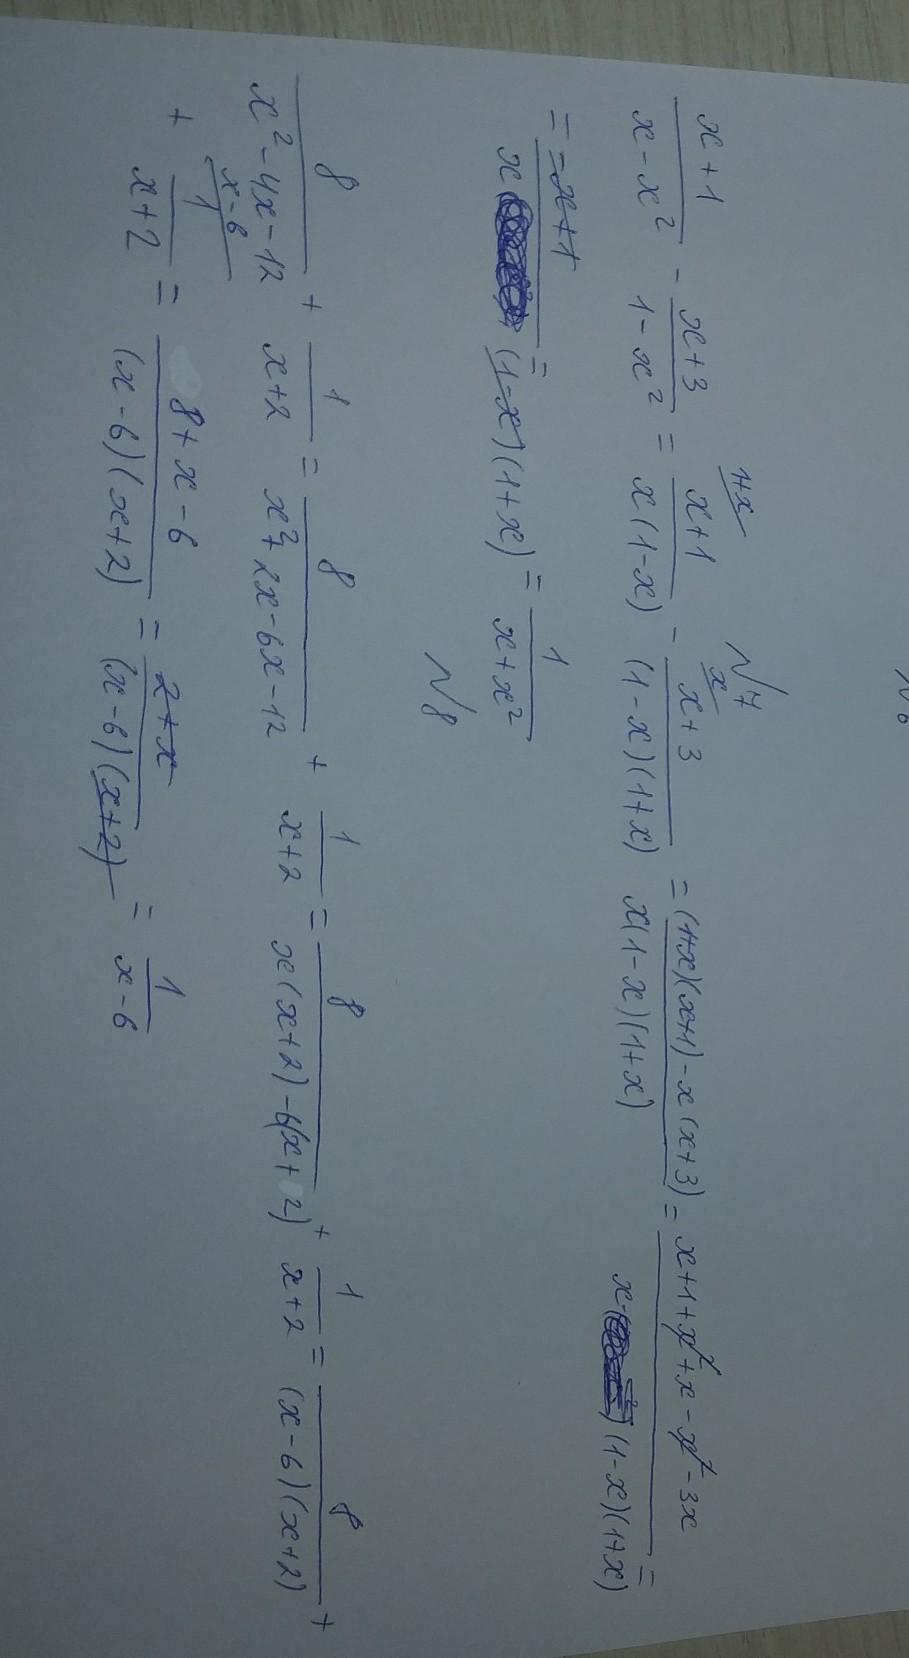 N7
(x+1)/(x-x²) - (x+3)/(1-x²) = (x+1)/(x(1-x)) 1+x - (x+3)/((1-x)(1+x)) x = ((1+x)(x+1)-x(x+3))/(x(1-x)(1+x)) = (x+1+x²+x-x²-3x)/(x(1-x)(1+x)) =
= (-x+1)/(x(1-x)(1+x)) = 1/(x+x²)
N8
8/(x²-4x-12) + 1/(x+2) = 8/(x²+2x-6x-12) + 1/(x+2) = 8/(x(x+2)-6(x+2)) + 1/(x+2) = 8/((x-6)(x+2)) +
+ 1/(x+2) x-6 = (8+x-6)/((x-6)(x+2)) = (2+x)/((x-6)(x+2)) = 1/(x-6)